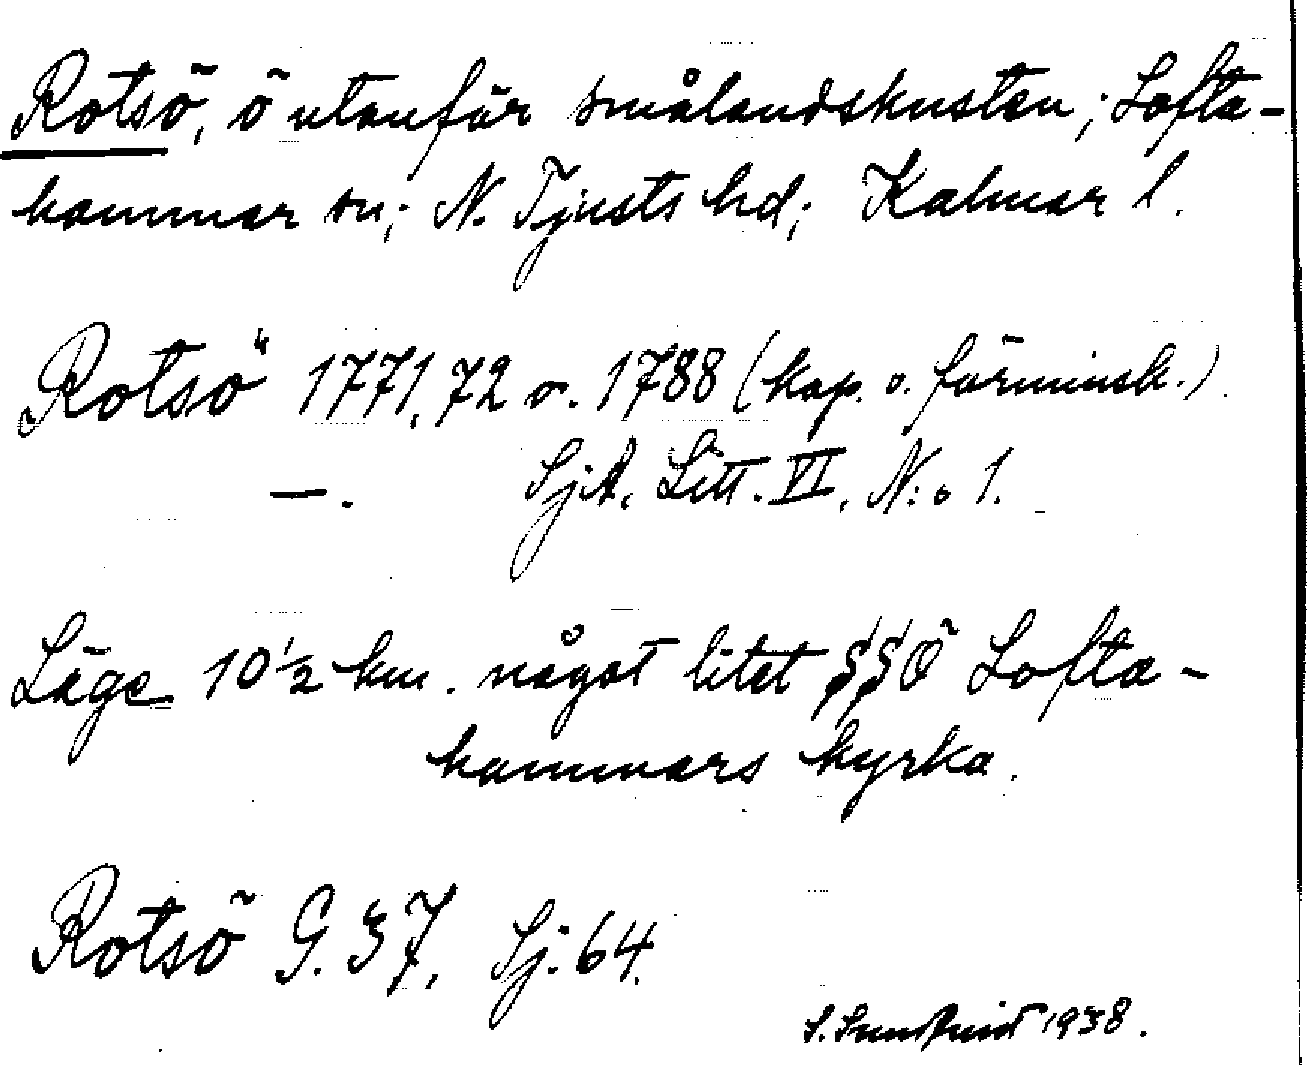 Rotsö, ö utanför smålandskusten; Lofta-
hammar sn; N. Tjusts hd; Kalmar l.
Rotsö 1771, 72 o. 1788 (kop. o. förminsk.)
—. SjA, Litt. VI, N:o 1.
Läge 10½ km. något litet SSÖ Lofta-
hammars kyrka.
Rotsö G. 37, Sj. 64.
1938.